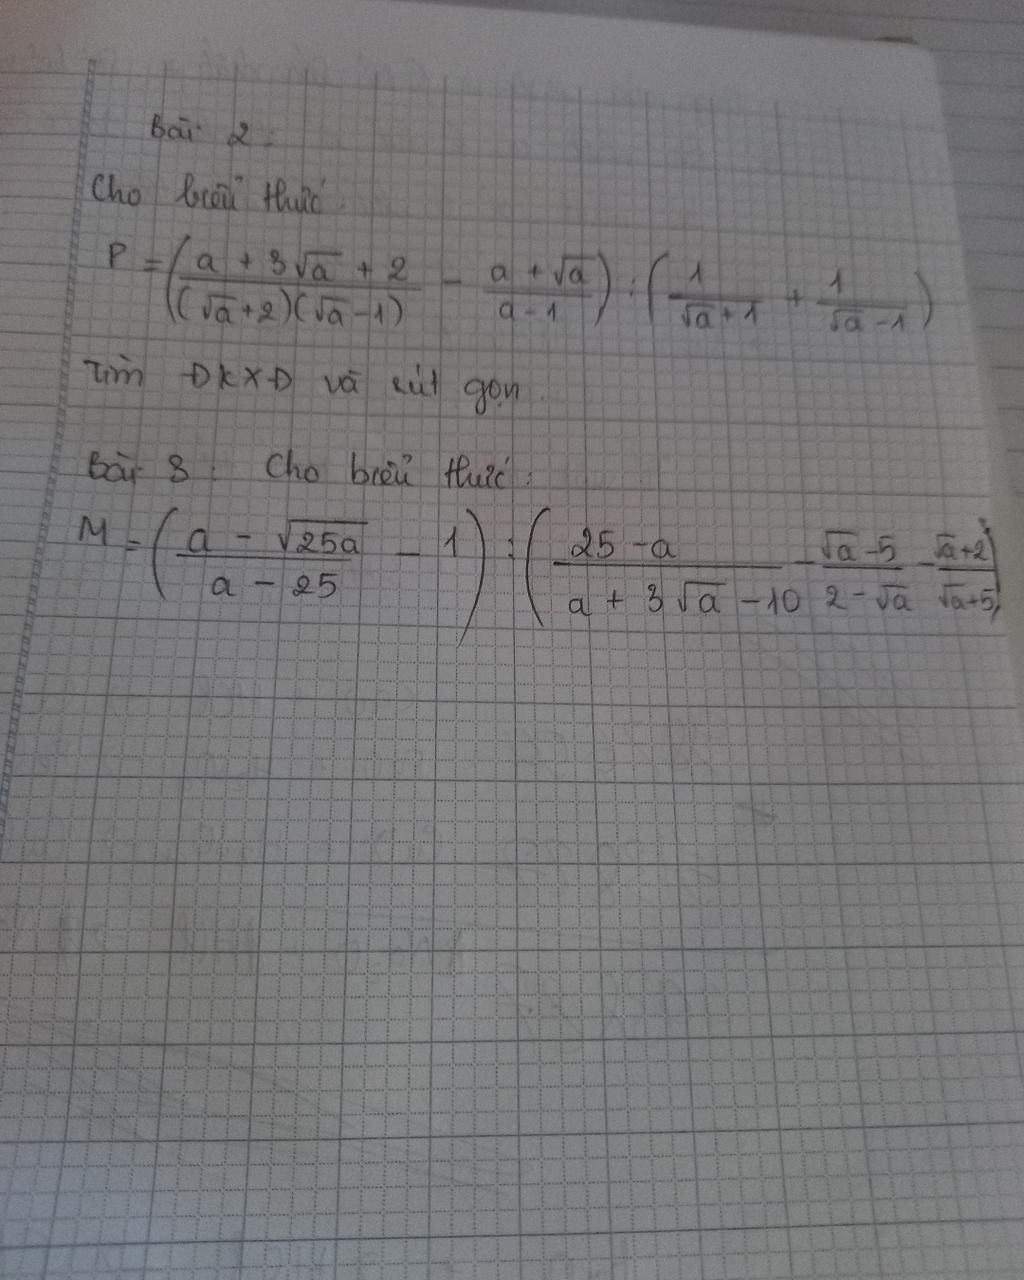 Bài 2:
Cho biểu thức
P = ((a + 3√a + 2)/((√a+2)(√a-1)) - (a + √a)/(a-1)) : (1/(√a+1) + 1/(√a-1))
Tìm ĐKXĐ và rút gọn.
Bài 3: Cho biểu thức:
M = ((a - √25a)/(a - 25) - 1) : ((25 - a)/(a + 3√a - 10) - (√a-5)/(2-√a) - (√a+2)/(√a+5))